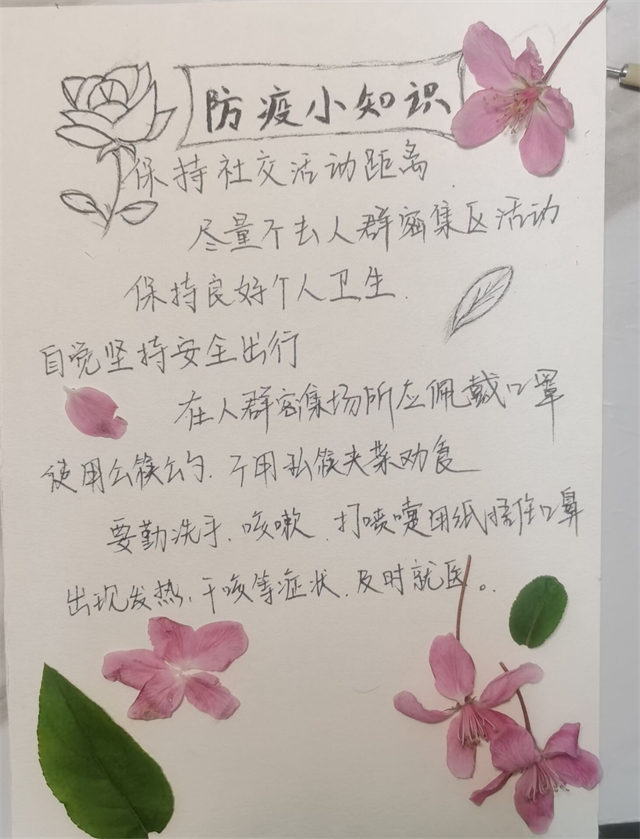 防疫小知识
保持社交活动距离
尽量不去人群密集区活动
保持良好个人卫生.
自觉坚持安全出行
在人群密集场所应佩戴口罩
使用公筷公勺.不用私筷夹菜劝食
要勤洗手.咳嗽.打喷嚏用纸捂住口鼻
出现发热、干咳等症状.及时就医。